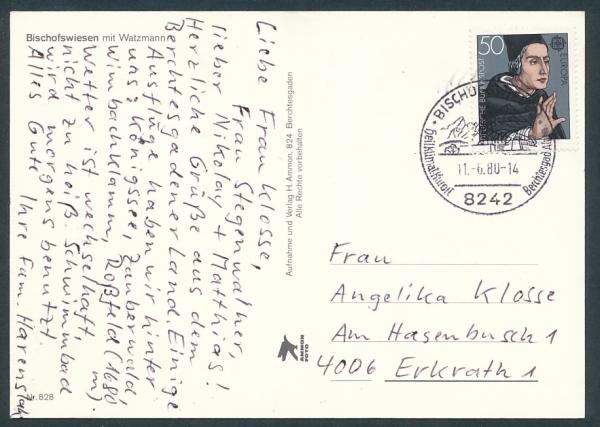 Bischofswiesen mit Watzmann
Liebe Frau Klosse,
Frau Stegenwallner,
lieber Nikolay + Matthias!
Herzliche Grüße aus dem
Berchtesgadener Land. Einige
Ausflüge haben wir hinter
uns: Königssee, Zauberwald,
Wimbachklamm, Roßfeld (1680 m).
Wetter ist wechselhaft,
nicht zu heiß. Schwimmbad
wird morgens benutzt.
Alles Gute Ihre Fam.
Nr. 828
Aufnahme und Verlag H. Ammon, 824 Berchtesgaden
Alle Rechte vorbehalten
AMMON
FOTO
50
DEUTSCHE BUNDESPOST
EUROPA
BISCHO
heilklimat. Kurort
Berchtesgad
11.-6.80-14
8242
Frau
Angelika Klosse
Am Hasenbusch 1
4006 Erkrath 1